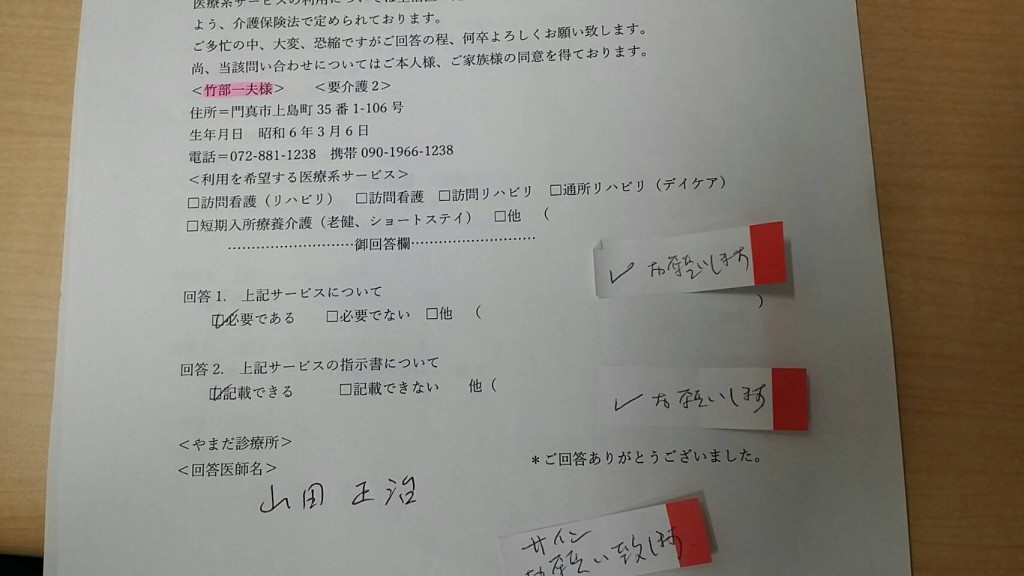 医療系サービスの利用については主治医
よう、介護保険法で定められております。
ご多忙の中、大変、恐縮ですがご回答の程、何卒よろしくお願い致します。
尚、当該問い合わせについてはご本人様、ご家族様の同意を得ております。
＜竹部一夫様＞　　＜要介護２＞
住所＝門真市上島町 35 番 1-106 号
生年月日　昭和 6 年 3 月 6 日
電話＝072-881-1238　携帯 090-1966-1238
＜利用を希望する医療系サービス＞
□訪問看護（リハビリ）　□訪問看護　□訪問リハビリ　□通所リハビリ（デイケア）
□短期入所療養介護（老健、ショートステイ）　□他　（
…………………………御回答欄…………………………
✓ お願いします
回答 1.　上記サービスについて
☑必要である　　□必要でない　□他　（　　）
回答 2.　上記サービスの指示書について
☑記載できる　　　□記載できない　　他（
✓ お願いします
＜やまだ診療所＞
＊ご回答ありがとうございました。
＜回答医師名＞
山田 正治
サイン
お願い致します